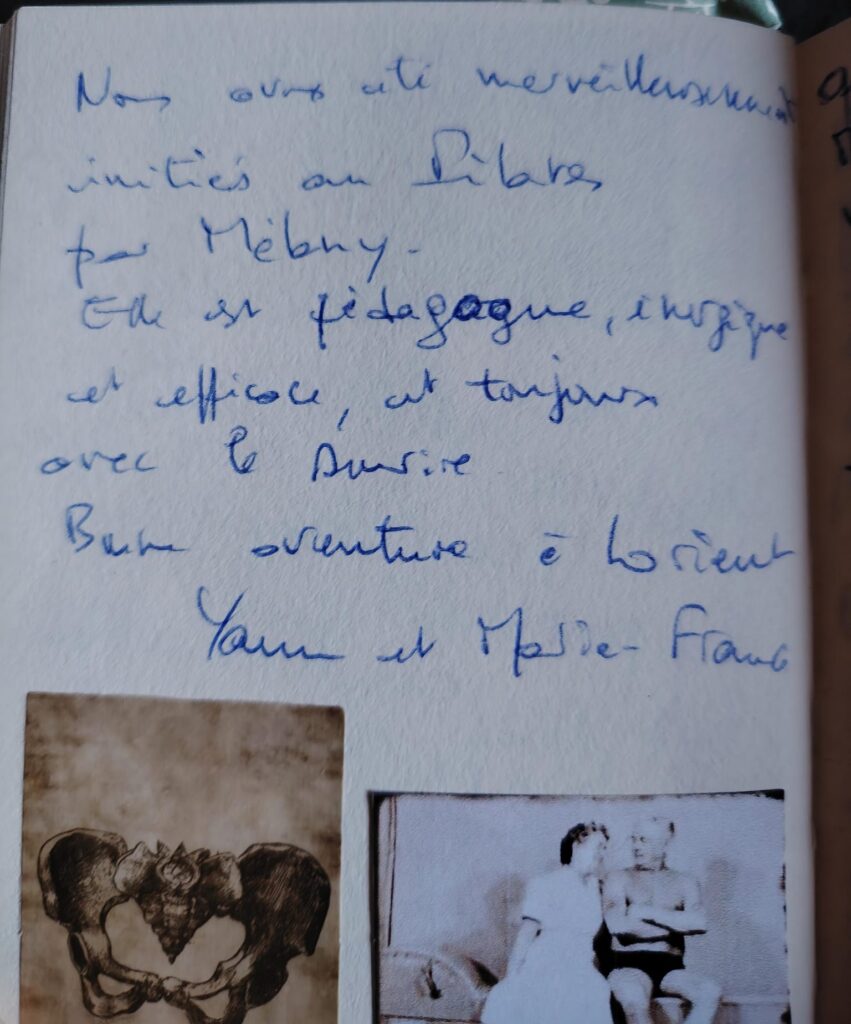 Nous avons été merveilleusement
initiés au Pilates
par Mélany.
Elle est pédagogue, énergique
et efficace, et toujours
avec le sourire
Bonne aventure à Lorient
Yann et Marie-France